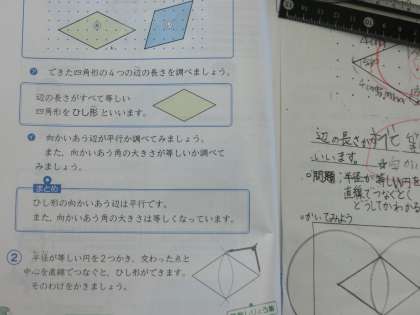 ア できた四角形の4つの辺の長さを調べましょう。
辺の長さがすべて等しい
四角形をひし形といいます。
イ 向かいあう辺が平行か調べてみましょう。
また，向かいあう角の大きさが等しいか調べて
みましょう。
まとめ
ひし形の向かいあう辺は平行です。
また，向かいあう角の大きさは等しくなっています。
② 半径が等しい円を2つかき，交わった点と
中心を直線でつなぐと，ひし形ができます。
そのわけをかきましょう。
辺の長さが
いいます。
○問題：半径が等しい円を
直線でつなぐと
どうしてかわかる
○かいてみよう